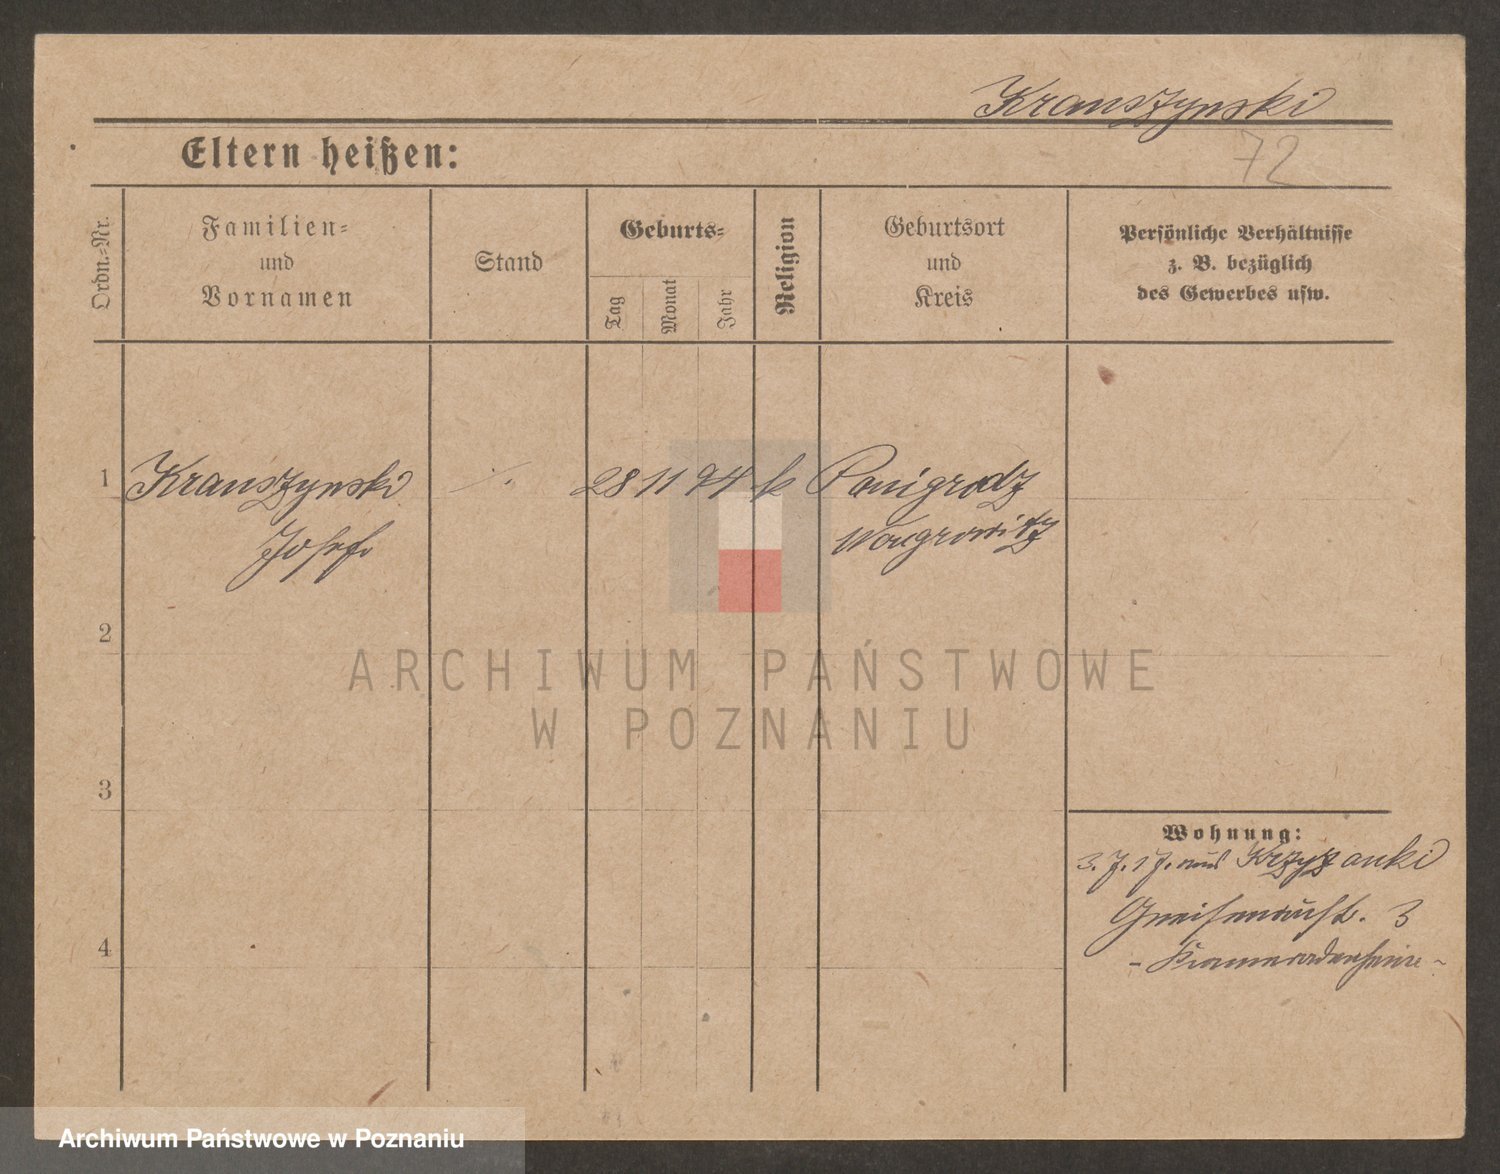 Kranszynski
72
Eltern heißen:
Ordn.-Nr.
Familien-
und
Vornamen
Stand
Geburts-
Tag
Monat
Jahr
Religion
Geburtsort
und
Kreis
Persönliche Verhältnisse
z. B. bezüglich
des Gewerbes usw.
1 Kranszynski ./. 28 11 94 k Panigrodz
Josef. Wongrowitz
2
ARCHIWUM PAŃSTWOWE
W POZNANIU
3
Wohnung:
3. 7. 17. aus
Gneisenaustr. 3
4
Archiwum Państwowe w Poznaniu